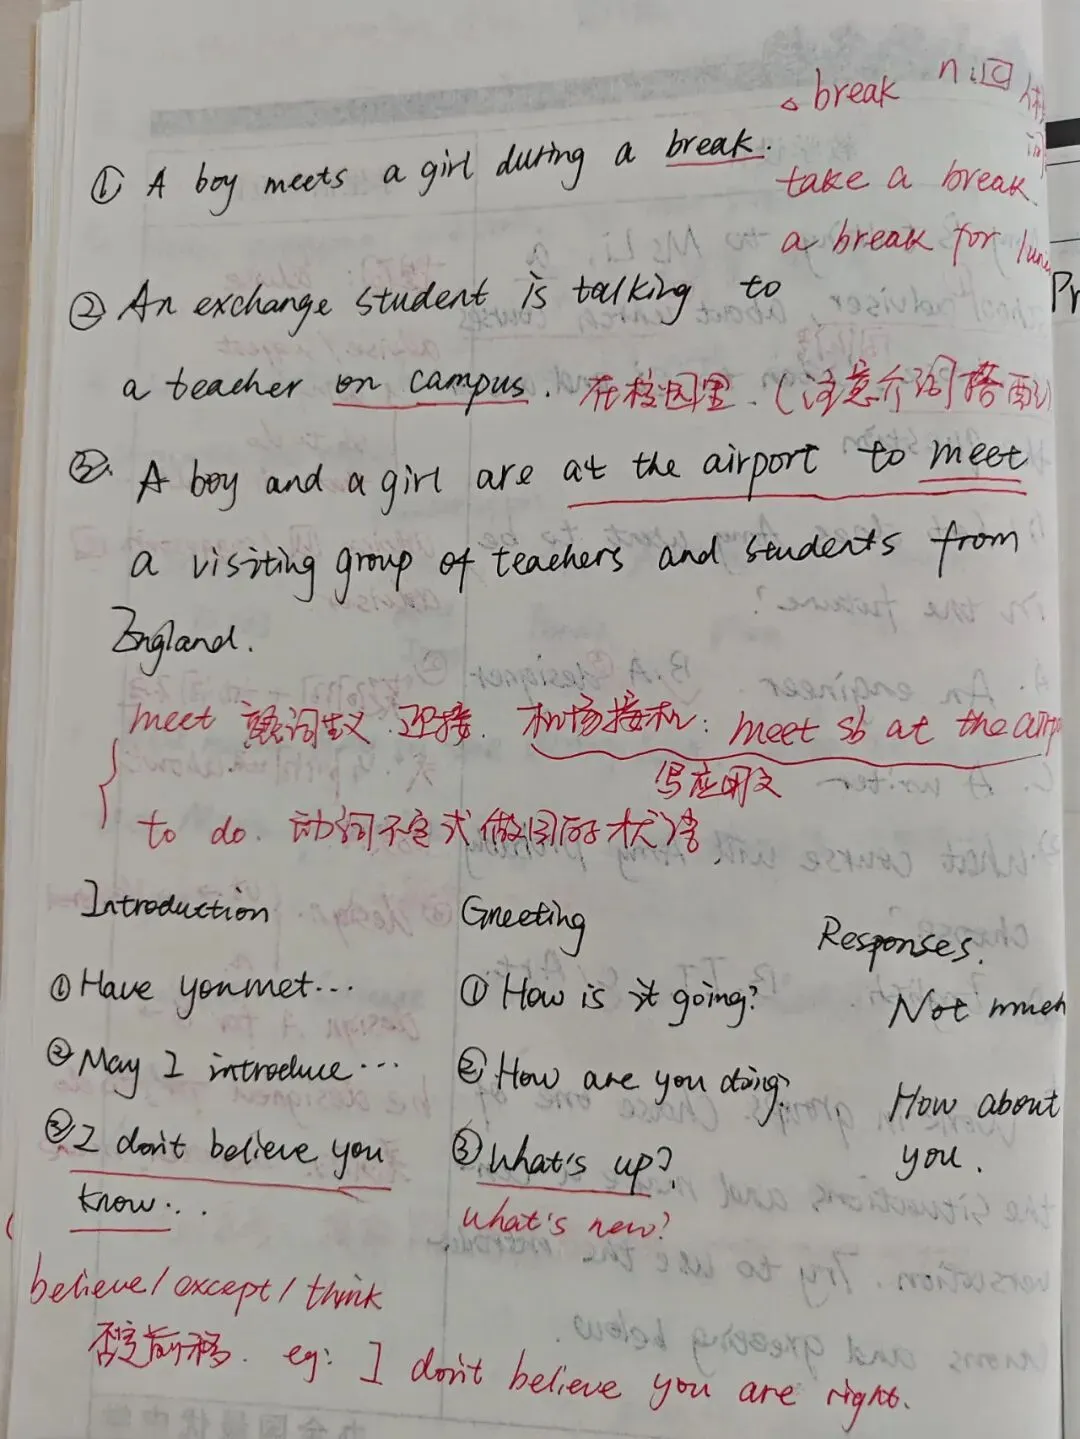 △ break n. [C]
① A boy meets a girl during a break.
take a break
a break for
② An exchange student is talking to
a teacher on campus. 在校园里.(注意介词搭配)
③. A boy and a girl are at the airport to meet
a visiting group of teachers and students from
England.
meet 熟词生义 迎接. 机场接机: meet sb at the
写应用文
to do. 动词不定式做目的状语
Introduction Greeting Responses.
① Have you met... ① How is it going? Not much
② May I introduce... ② How are you doing? How about
③ I don't believe you ③ What's up? you.
know... What's new?
believe / except / think
否定前移. eg: I don't believe you are right.
Pr